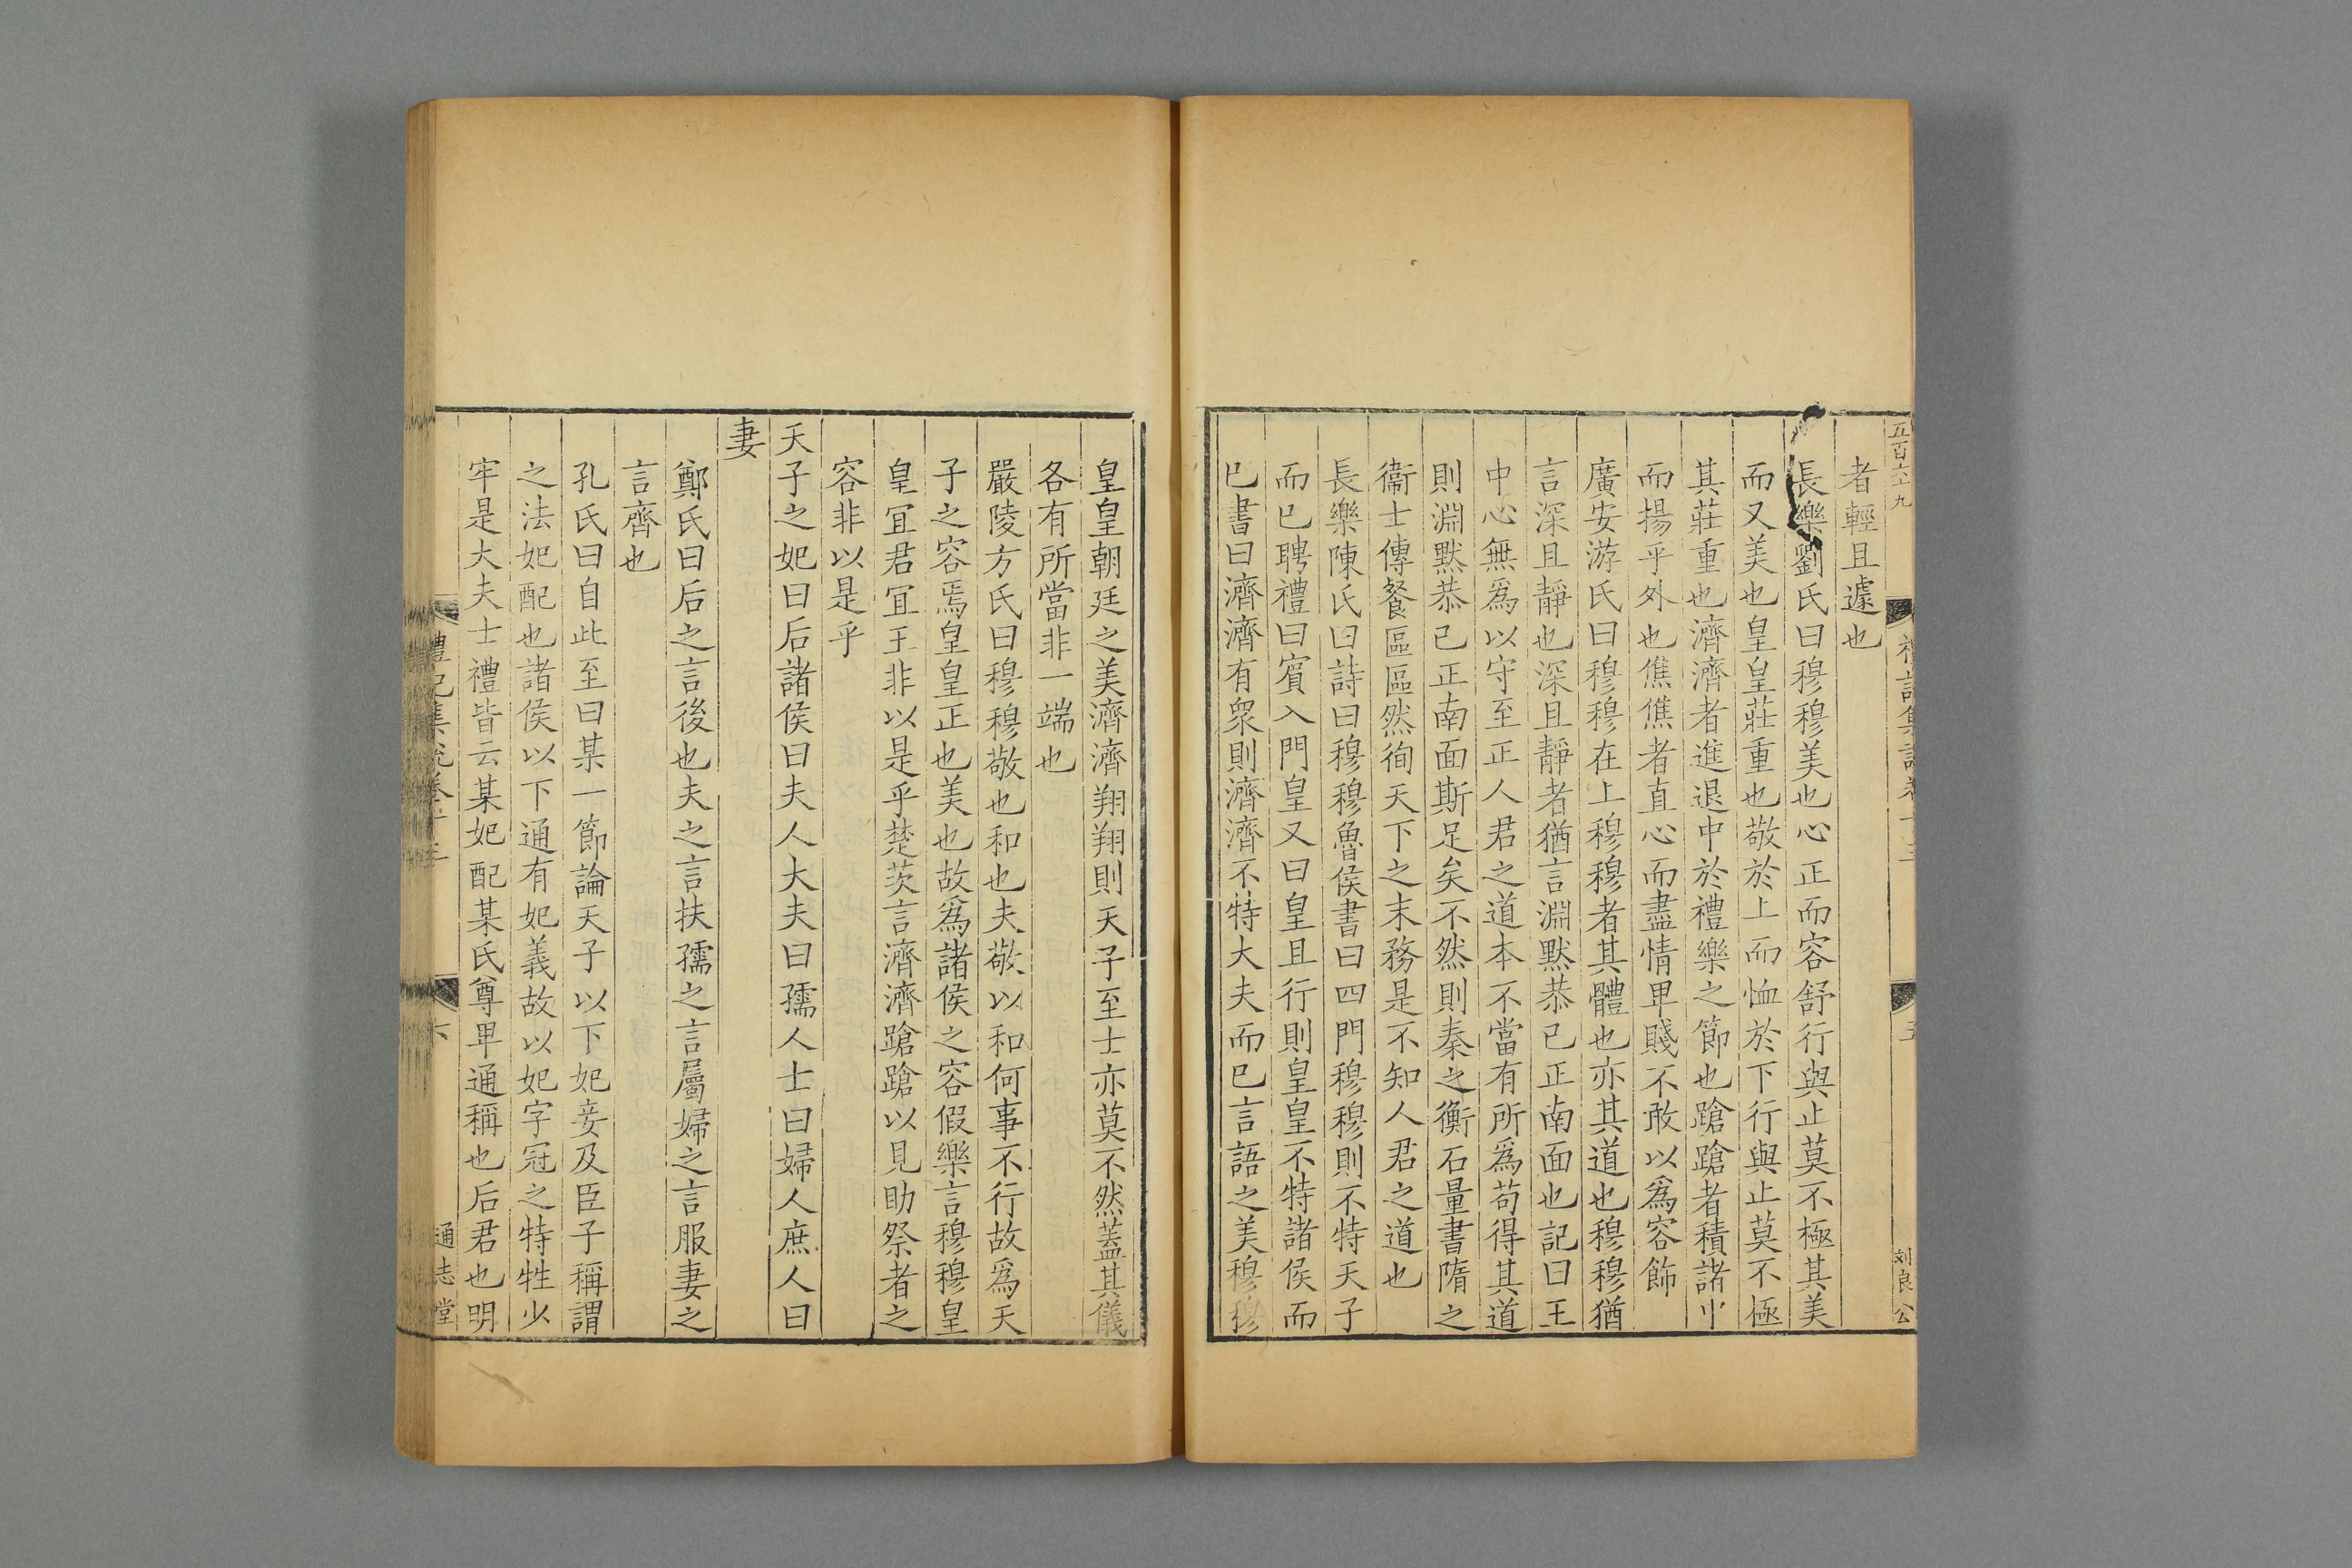 五百六十九
禮記集說卷十三
五
刘良公
者輕且遽也
長樂劉氏曰穆穆美也心正而容舒行與止莫不極其美
而又美也皇皇莊重也敬於上而恤於下行與止莫不極
其莊重也濟濟者進退中於禮樂之節也蹌蹌者積諸中
而揚乎外也僬僬者直心而盡情卑賤不敢以爲容飾
廣安游氏曰穆穆在上穆穆者其體也亦其道也穆穆猶
言深且靜也深且靜者猶言淵默恭己正南面也記曰王
中心無爲以守至正人君之道本不當有所爲苟得其道
則淵默恭己正南面斯足矣不然則秦之衡石量書隋之
衞士傳餐區區然徇天下之末務是不知人君之道也
長樂陳氏曰詩曰穆穆魯侯書曰四門穆穆則不特天子
而已聘禮曰賓入門皇又曰皇且行則皇皇不特諸侯而
已書曰濟濟有衆則濟濟不特大夫而已言語之美穆穆
皇皇朝廷之美濟濟翔翔則天子至士亦莫不然蓋其儀
各有所當非一端也
嚴陵方氏曰穆穆敬也和也夫敬以和何事不行故爲天
子之容焉皇皇正也美也故爲諸侯之容假樂言穆穆皇
皇宜君宜王非以是乎楚茨言濟濟蹌蹌以見助祭者之
容非以是乎
天子之妃曰后諸侯曰夫人大夫曰孺人士曰婦人庶人曰
妻
鄭氏曰后之言後也夫之言扶孺之言屬婦之言服妻之
言齊也
孔氏曰自此至曰某一節論天子以下妃妾及臣子稱謂
之法妃配也諸侯以下通有妃義故以妃字冠之特牲少
牢是大夫士禮皆云某妃配某氏尊卑通稱也后君也明
禮記集說卷十三
六
通志堂